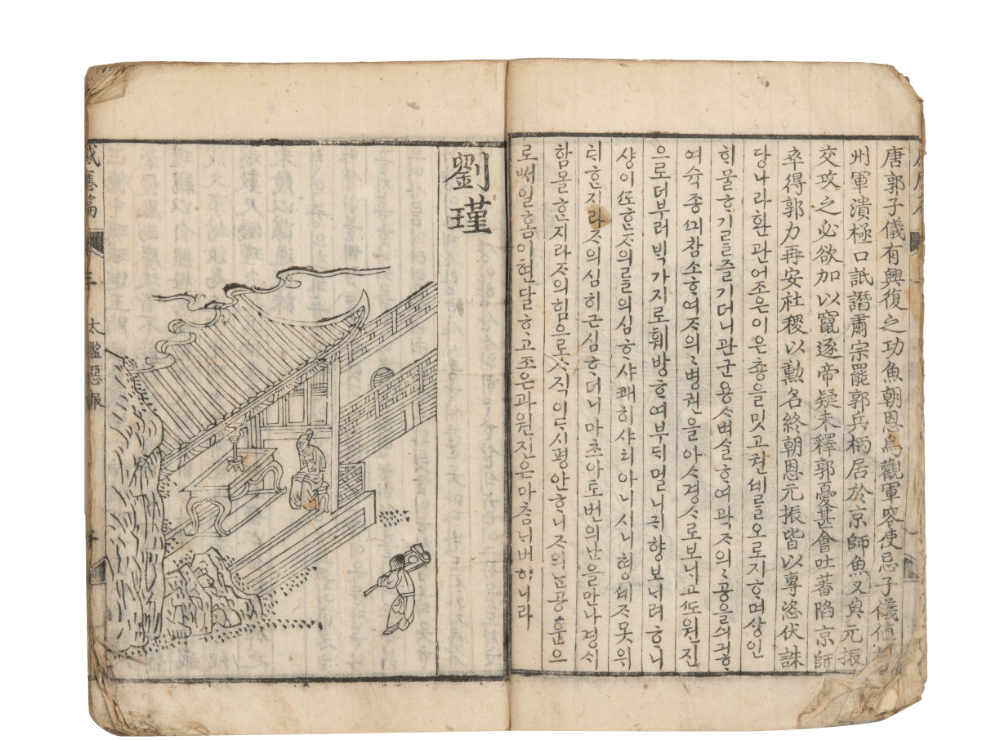 唐郭子儀有興復之功魚朝恩爲觀軍容使忌子儀值
州軍潰極口詆譖肅宗罷郭兵柄居於京師魚又與元振
交攻之必欲加以竄逐帝疑未釋郭憂甚會吐蕃陷京師
卒得郭力再安社稷以勳名終朝恩元振皆以專恣伏誅
당나라환관어조은이은총을밋고권셰를오로지ᄒᆞ며샹인
ᄒᆡ물ᄒᆞ기를즐기더니관군용ᄉᆞ벼슬ᄒᆞ여곽ᄌᆞ의ᄀᆞ공을ᄭᅥ
여슉종ᄭᅴ참소ᄒᆞ여ᄌᆞ의ᄀᆞ병권을아ᄉᆞ경ᄉᆞ로보ᄂᆡ고ᄯᅩ원진
으로더부러ᄇᆡᆨ가지로훼방ᄒᆞ여부ᄃᆡ멀니귀향보ᄂᆡ려ᄒᆞ니
샹이ᄌᆞ의를의심ᄒᆞ샤쾌히샤ᄒᆡ아니시니형셰ᄌᆞ못위
ᄐᆡᄒᆞᆫ지라ᄌᆞ의심히근심ᄒᆞ더니마초아토번의난을만나경ᄉᆡ
함몰ᄒᆞᆫ지라ᄌᆞ의힘으로ᄉᆞ직이다시평안ᄒᆞ니ᄌᆞ의ᄂᆞᆫ공훈으
로ᄡᅥ일홈이현달ᄒᆞ고조은과원진은마ᄎᆞᆷᄂᆡ버히니라
劉瑾
感應篇
五
太監惡報